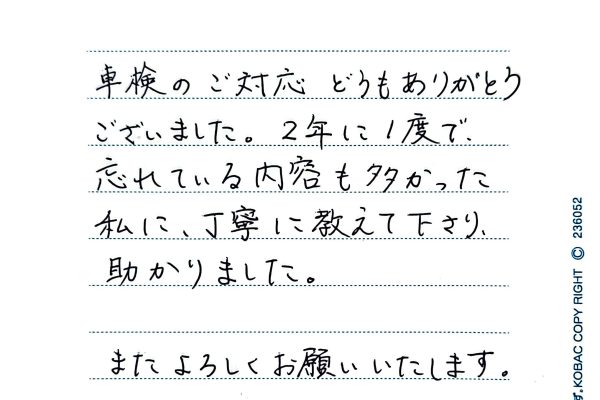 車検のご対応 どうもありがとう
ございました。2年に1度で、
忘れている内容も多かった
私に、丁寧に教えて下さり、
助かりました。
またよろしくお願いいたします。
す。KOBAC COPY RIGHT © 236052